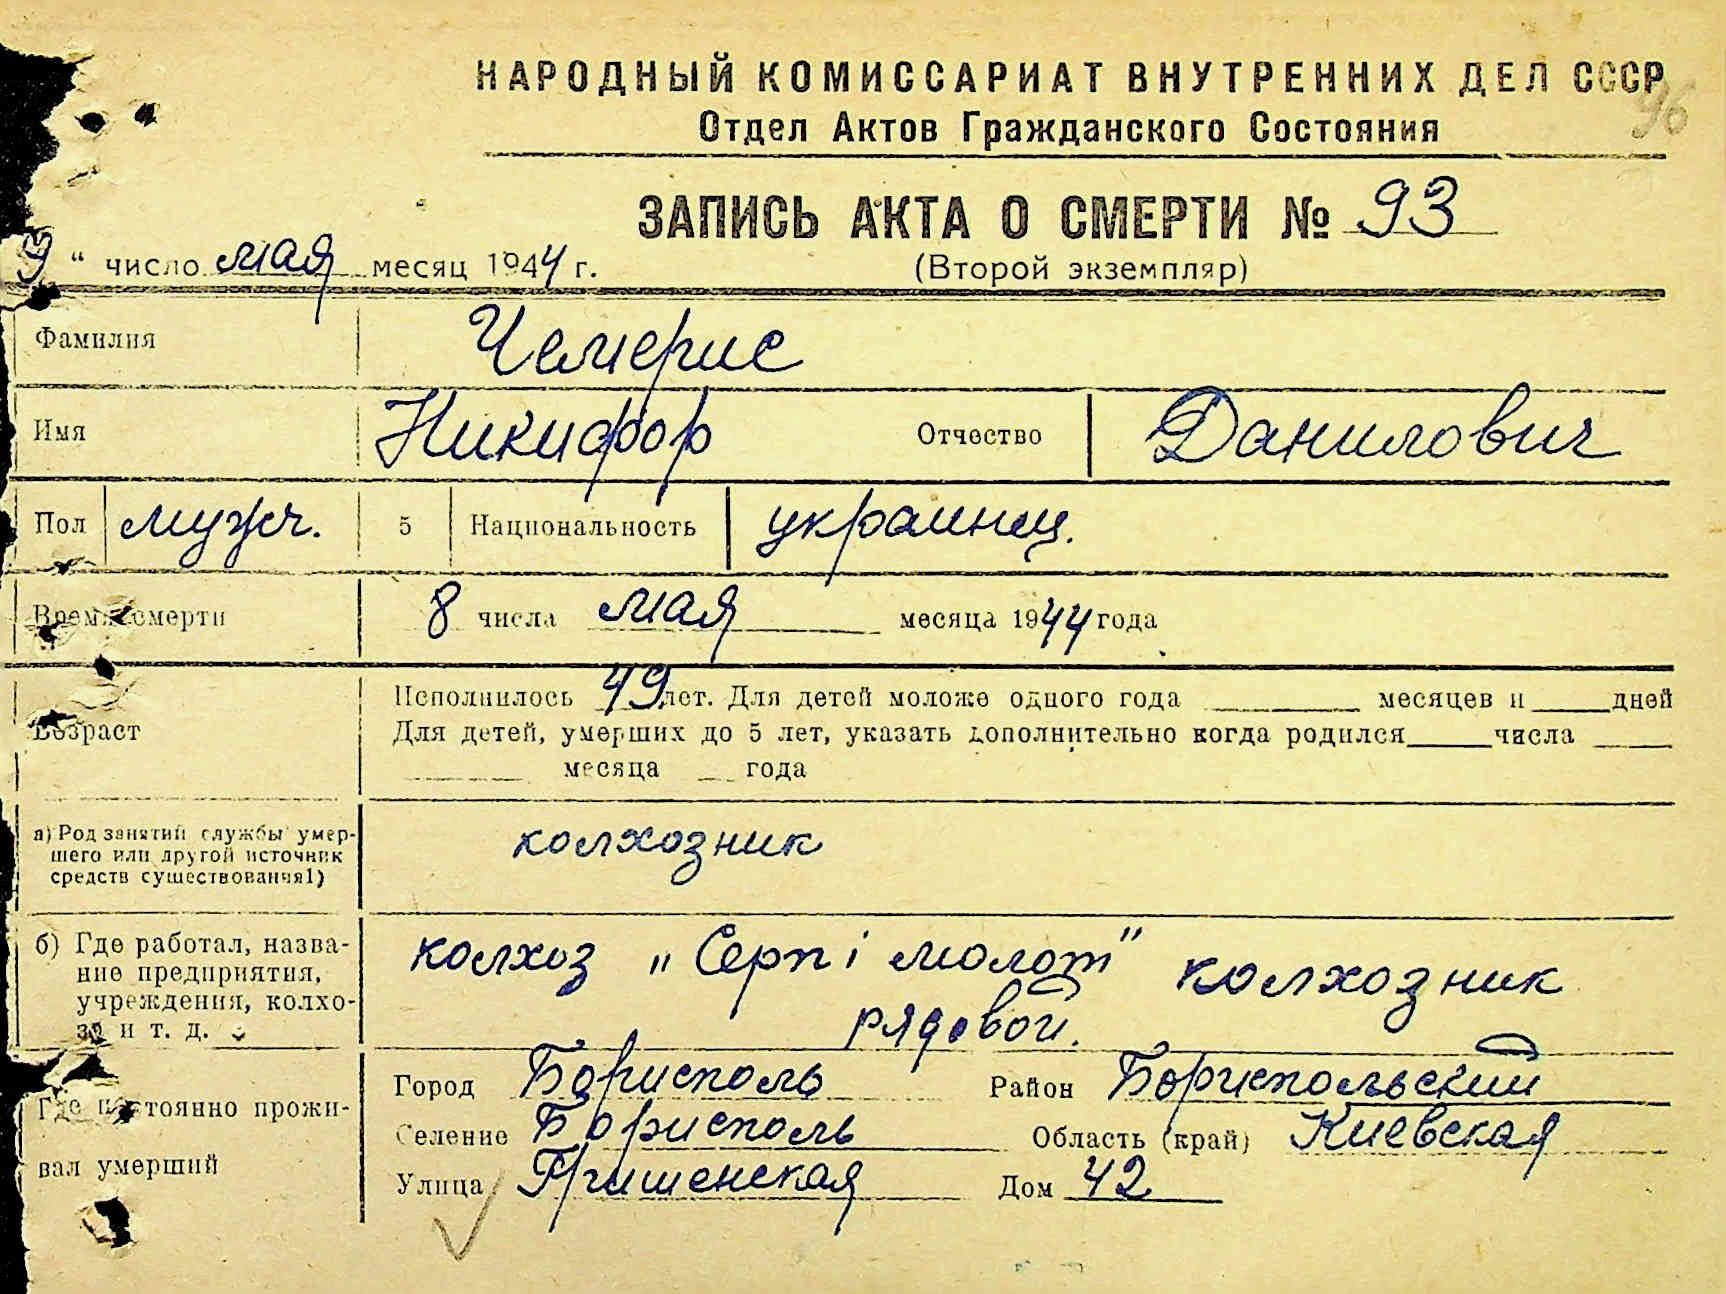 НАРОДНЫЙ КОМИССАРИАТ ВНУТРЕННИХ ДЕЛ СССР
96
Отдел Актов Гражданского Состояния
ЗАПИСЬ АКТА О СМЕРТИ № 93
9 " число мая месяц 1944 г. (Второй экземпляр)
Фамилия Чемерис
Имя Никифор Отчество Данилович
Пол мужч. 5 Национальность украинец.
Время смерти 8 числа мая месяца 1944 года
Исполнилось 49 лет. Для детей моложе одного года месяцев и дней
Возраст Для детей, умерших до 5 лет, указать дополнительно когда родился числа
месяца года
а) Род занятий службы умер-
шего или другой источник
средств существования1)
колхозник
б) Где работал, назва-
ние предприятия,
учреждения, колхо-
за и т. д.
колхоз „Серп і молот" колхозник
рядовой.
Где постоянно прожи-
вал умерший
Город Борисполь Район Бориспольский
Селение Борисполь Область (край) Киевская
Улица Дом 42